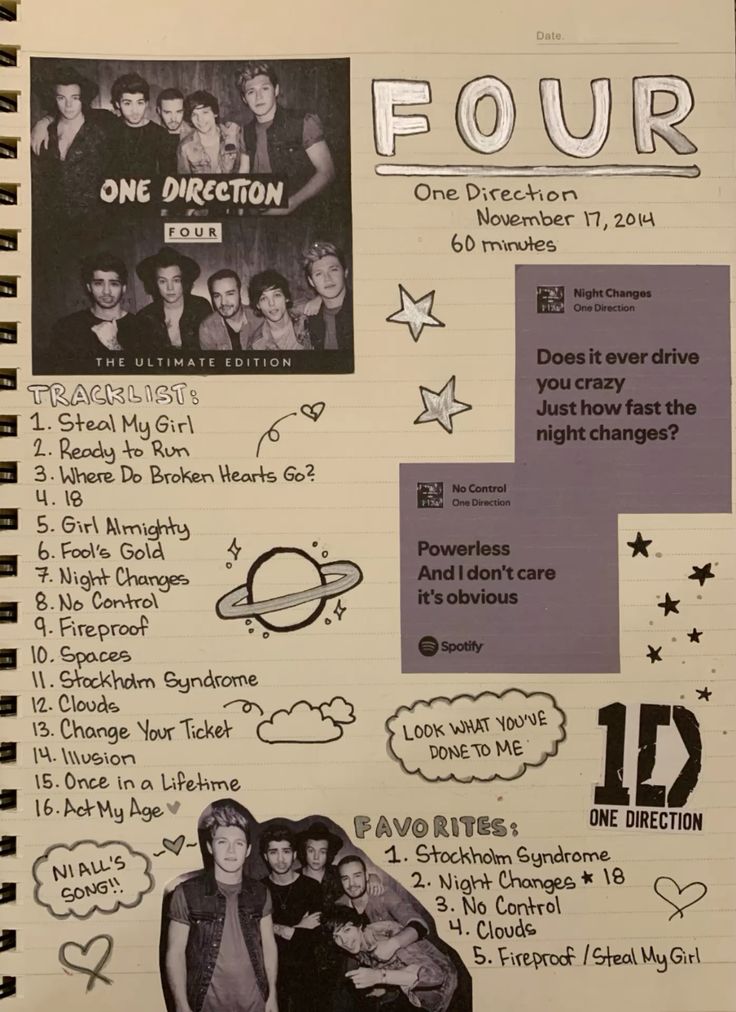 Date.
FOUR
One Direction
November 17, 2014
60 minutes
ONE DIRECTION
FOUR
THE ULTIMATE EDITION
Night Changes
One Direction
Does it ever drive
you crazy
Just how fast the
night changes?
No Control
One Direction
Powerless
And I don't care
it's obvious
Spotify
TRACKLIST:
1. Steal My Girl
2. Ready to Run
3. Where Do Broken Hearts Go?
4. 18
5. Girl Almighty
6. Fool's Gold
7. Night Changes
8. No Control
9. Fireproof
10. Spaces
11. Stockholm Syndrome
12. Clouds
13. Change Your Ticket
14. Illusion
15. Once in a Lifetime
16. Act My Age
LOOK WHAT YOU'VE
DONE TO ME
1D
ONE DIRECTION
NIALL'S
SONG!!
FAVORITES:
1. Stockholm Syndrome
2. Night Changes * 18
3. No Control
4. Clouds
5. Fireproof / Steal My Girl